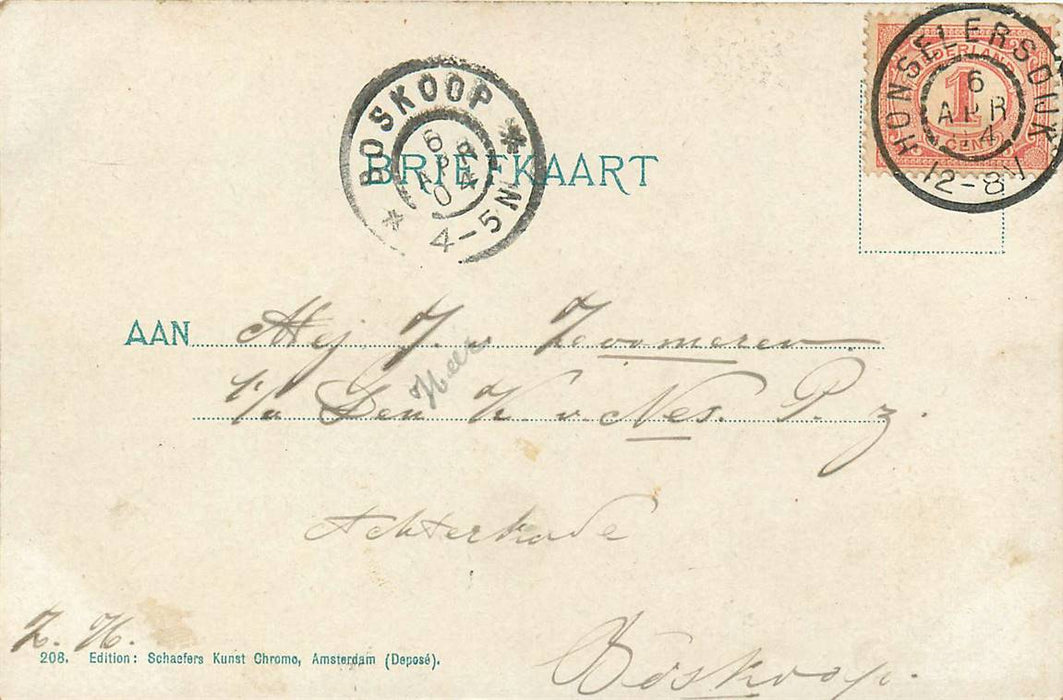 NEDERLAND
1
CENT
HONSELERSDIJK
6
APR
12-8N
BOSKOOP
6
APR
04
4-5N
BRIEFKAART
AAN Mej J. v Zoomeren
Heer
c/o Den K. v. Nes. P. z.
Achterkade
Boskoop.
Z. H.
208. Edition: Schaefers Kunst Chromo, Amsterdam (Deposé).